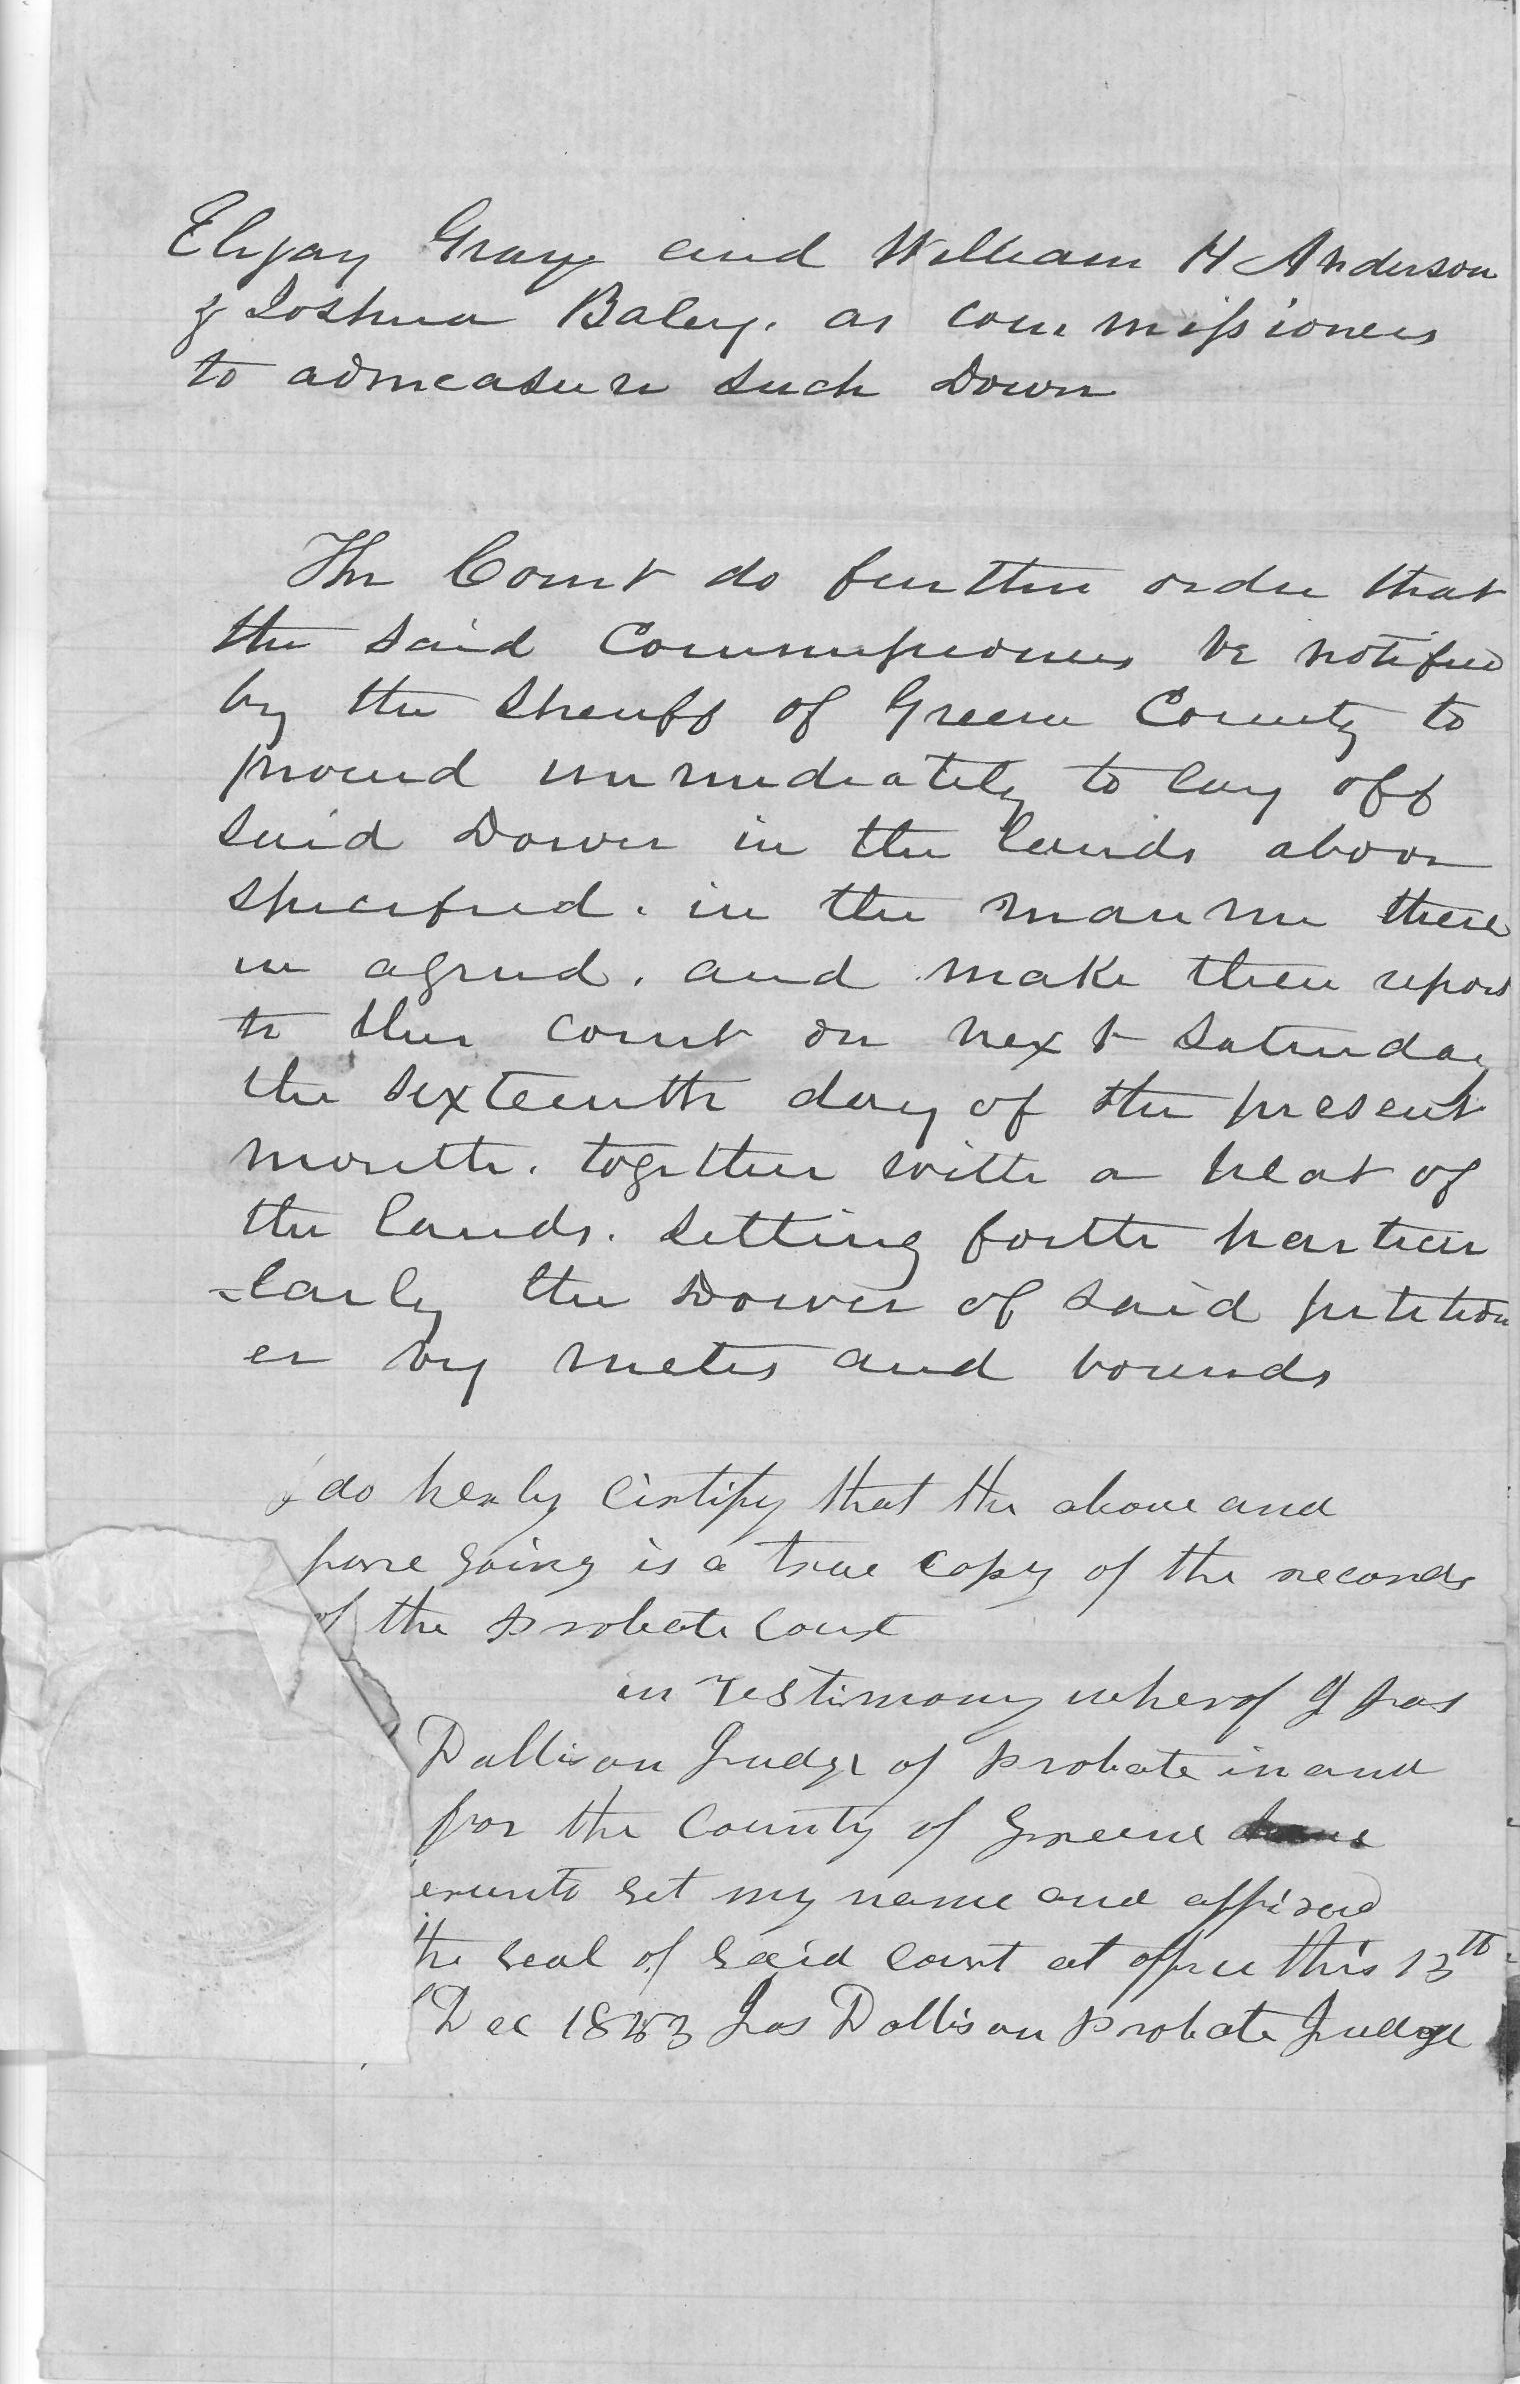 Elijay Gray and William H Anderson
& Joshua Baley. as commissioners
to admeasure such Dower
The Court do further order that
the said Commissioners be notified
by the Sheriff of Greene County to
proceed immediately to lay off
said Dower in the lands above
specified. in the manner there
in agreed. and make their report
to this court on next Saturday
the sixteenth day of the present
month. together with a plat of
the lands. setting forth particu
-larly the Dower of said petition
er by metes and bounds
I do herely certify that the above and
fore going is a true copy of the records
of the Probate Court
in Testimony wherof I Jas
Dollison Judge of Probate in and
for the County of Greene
ereunto set my name and affixed
the seal of said court at office this 13th
Dec 1853 Jas Dollison Probate Judge